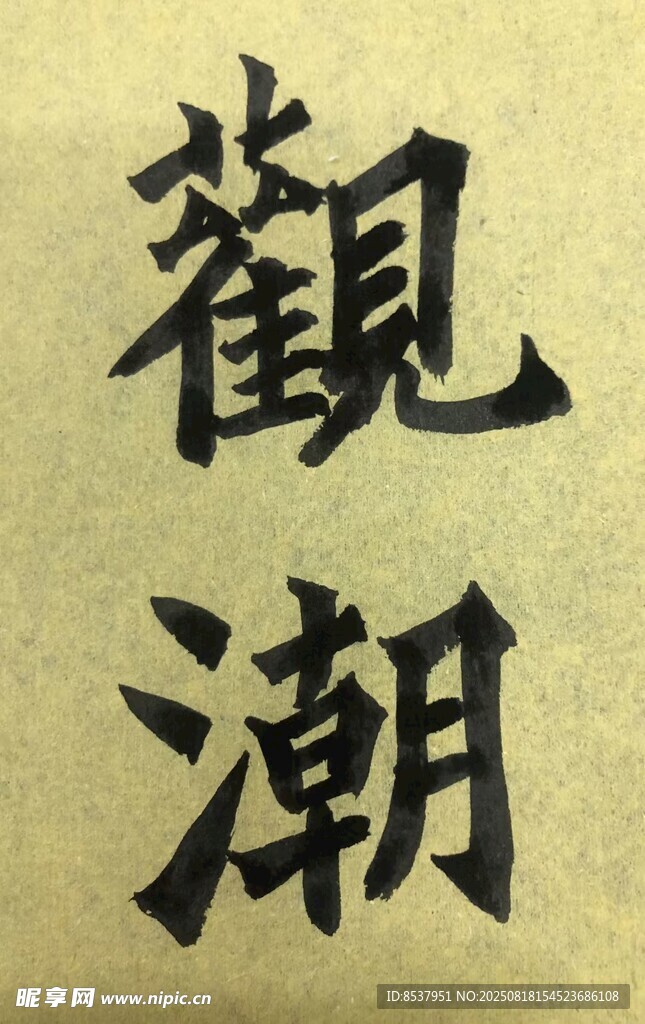 觀
潮
昵享网 www.nipic.cn
ID:8537951 NO:20250818154523686108